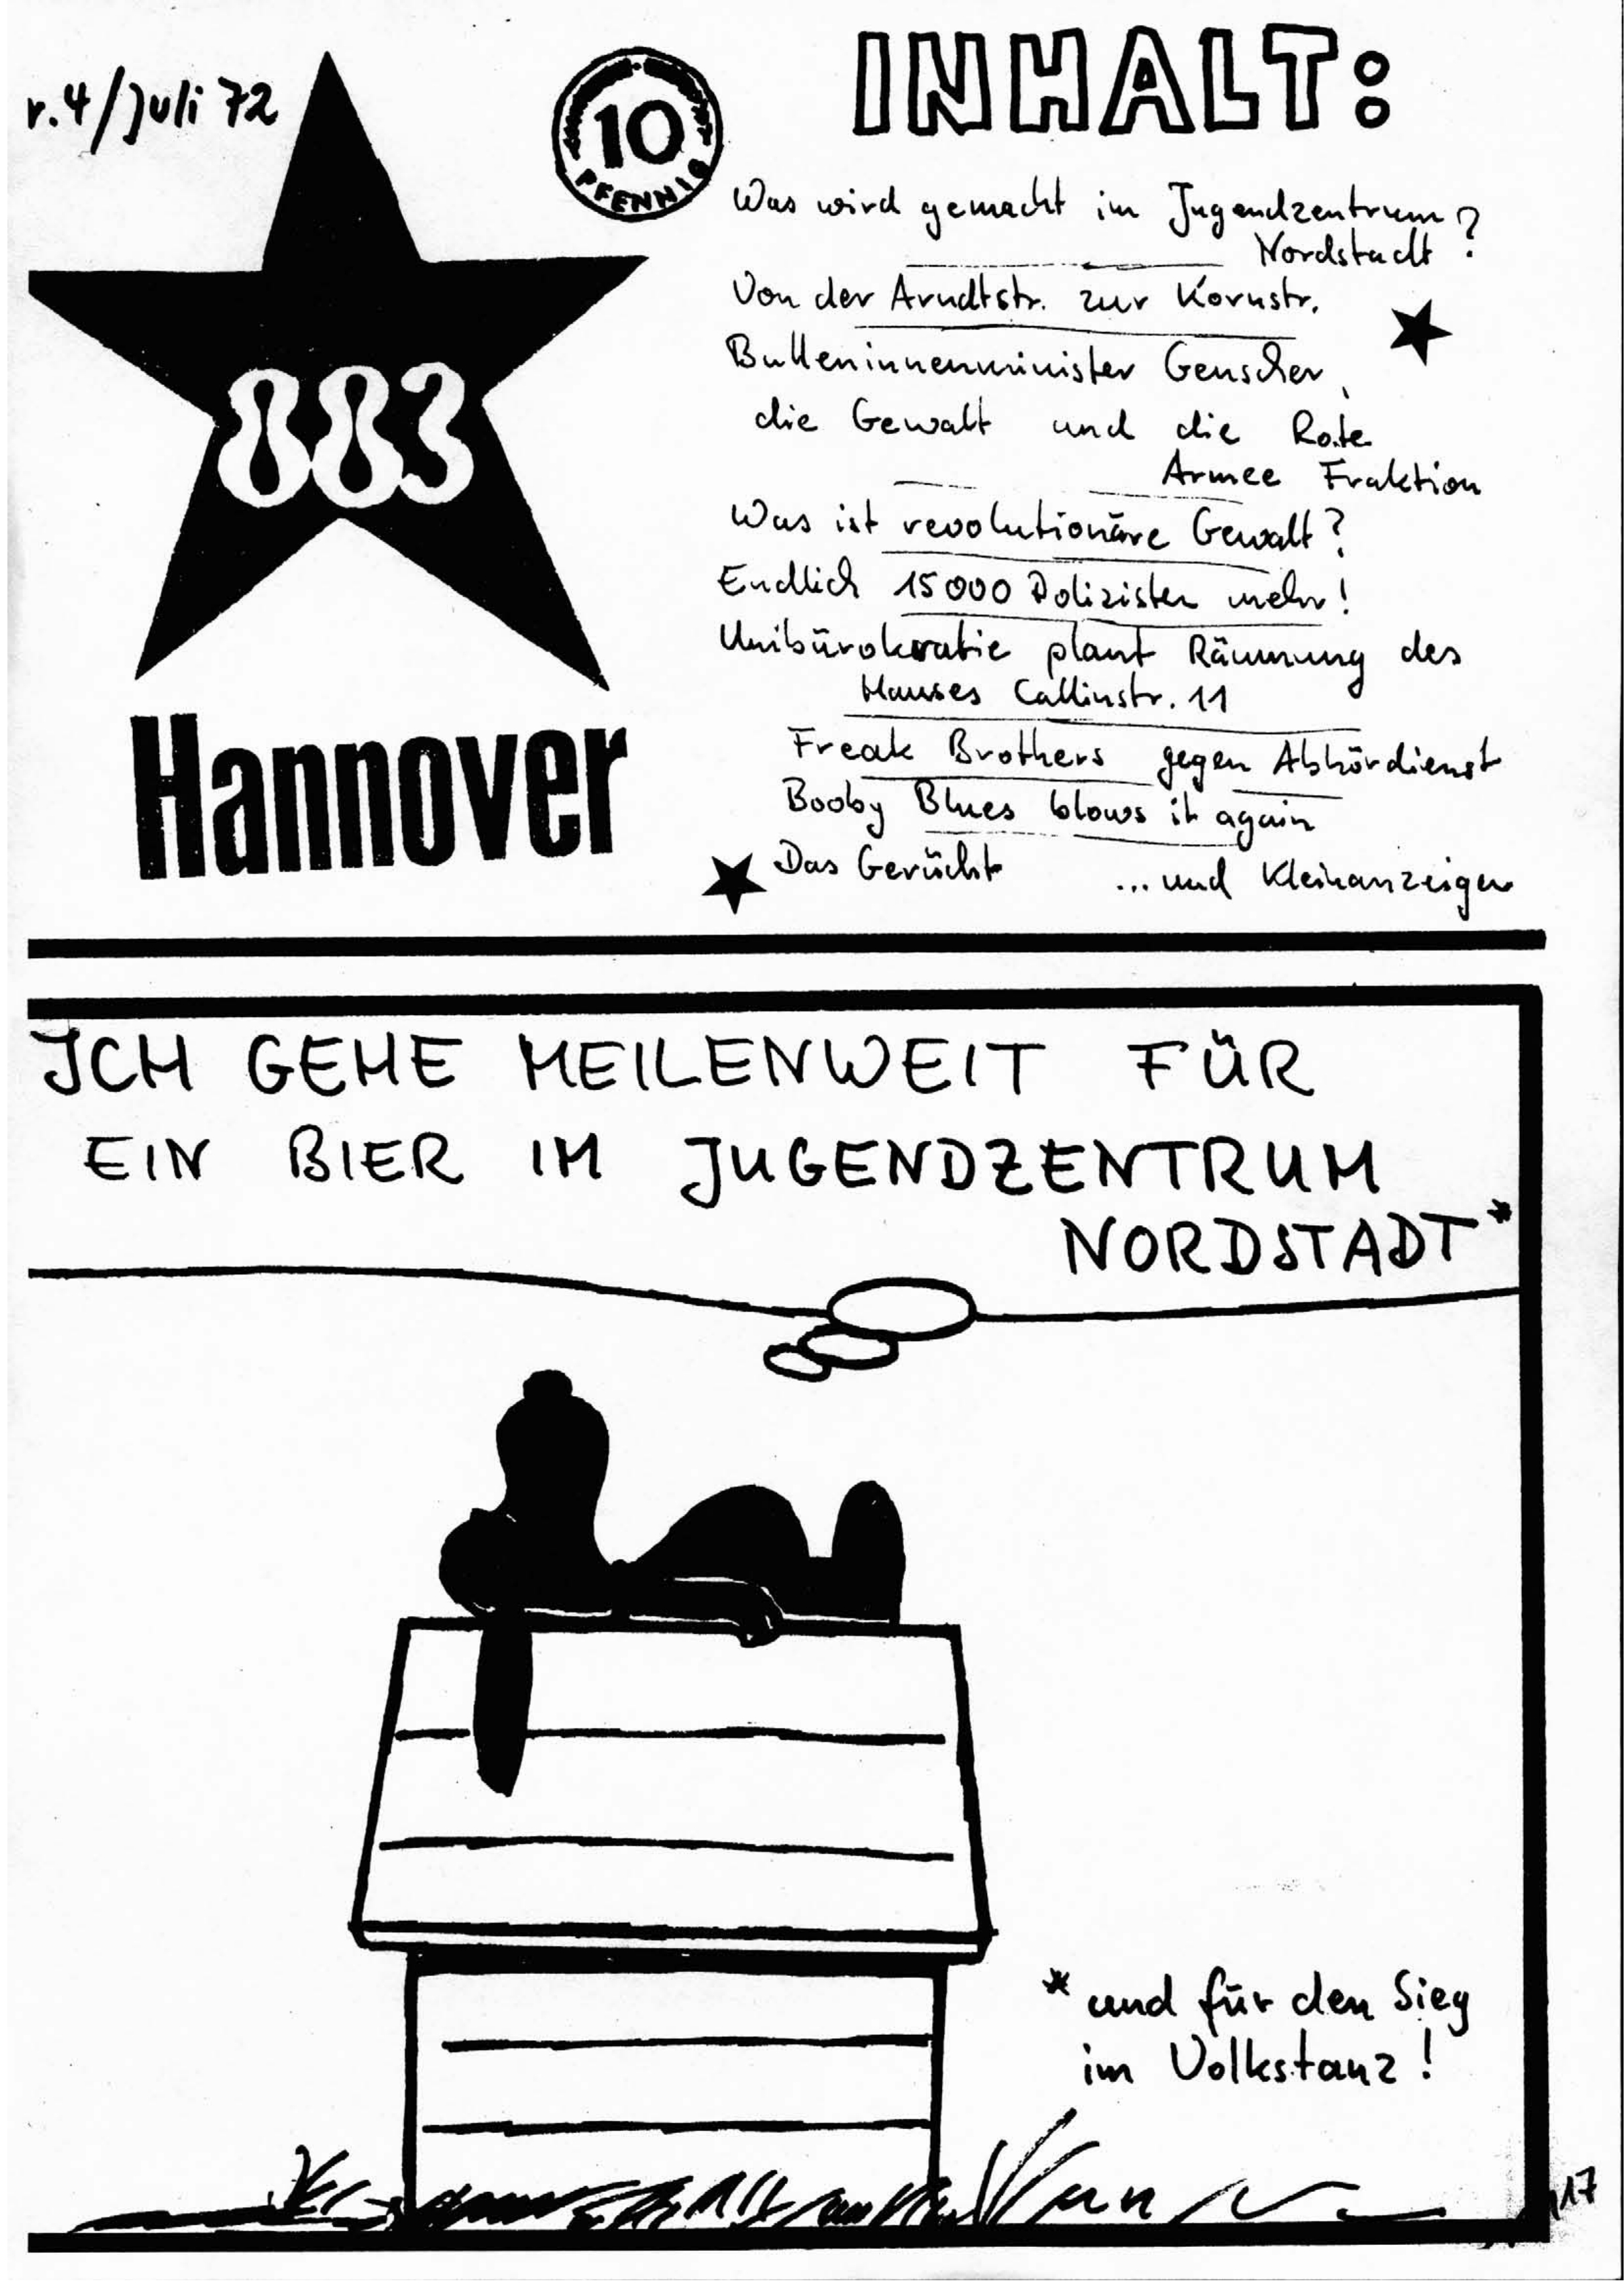 r.4/Juli 72
10
PFENNIG
883
Hannover
INHALT:
Was wird gemacht im Jugendzentrum
Nordstadt ?
Von der Arndtstr. zur Kornstr.
Bulleninnenminister Genscher,
die Gewalt und die Rote
Armee Fraktion
Was ist revolutionäre Gewalt?
Endlich 15000 Polizisten mehr!
Unibürokratie plant Räumung des
Hauses Callinstr. 11
Freak Brothers gegen Abhördienst
Booby Blues blows it again
Das Gerücht ...und Kleinanzeigen
ICH GEHE MEILENWEIT FÜR
EIN BIER IM JUGENDZENTRUM
NORDSTADT*
* und für den Sieg
im Volkstanz!
17